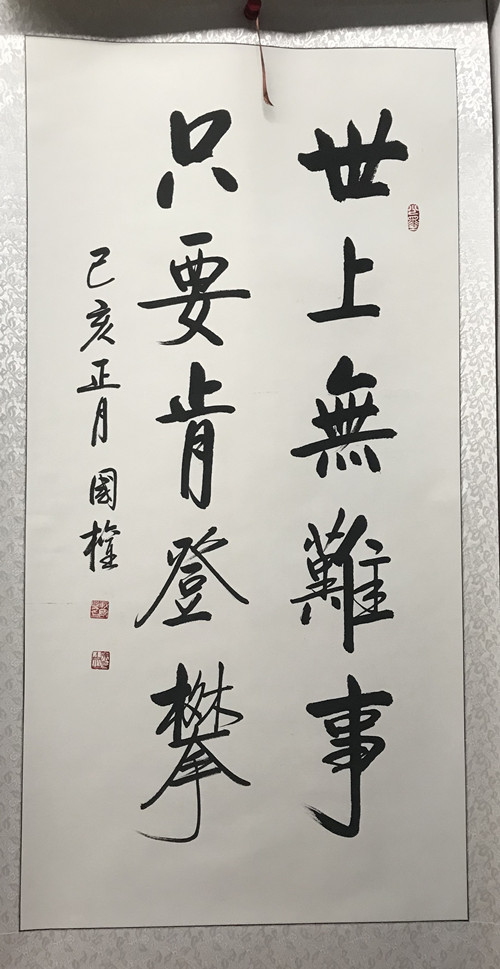 世上無難事
只要肯登攀
己亥正月 國權